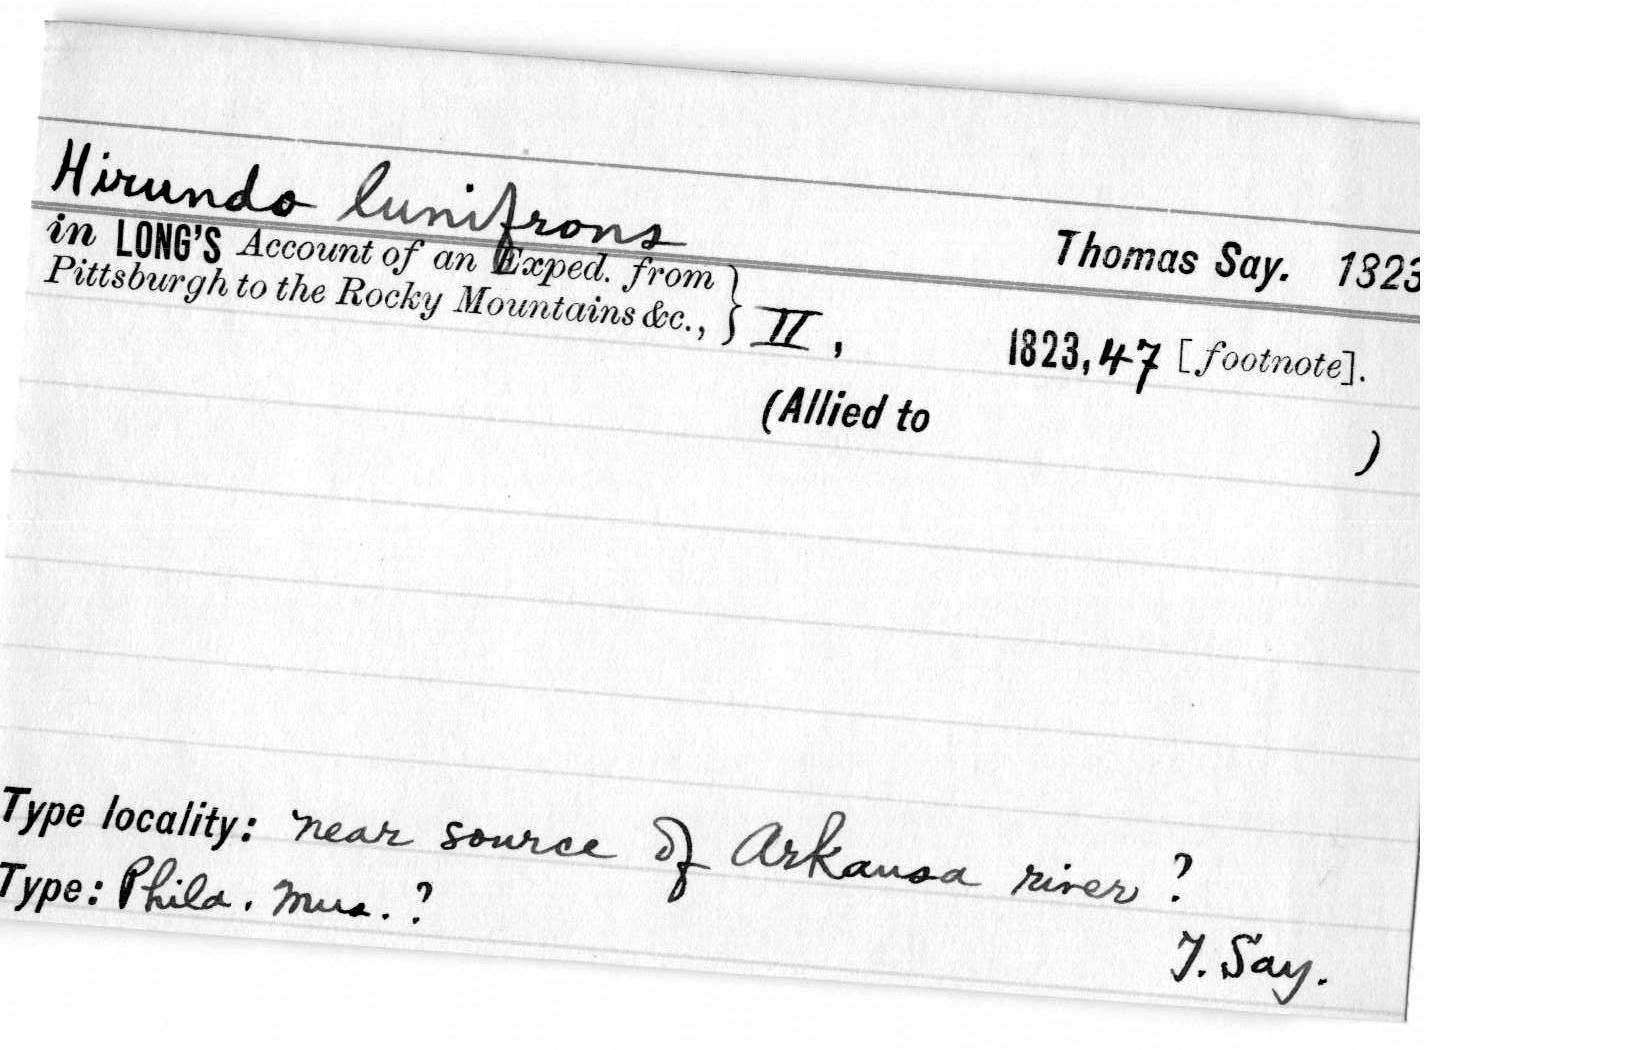 Hirundo lunifrons
Thomas Say. 1823
in LONG'S Account of an Exped. from
Pittsburgh to the Rocky Mountains &c., } II, 1823, 47 [footnote].
(Allied to )
Type locality: near source of Arkansa river ?
Type: Phila. Mus. ?
T. Say.